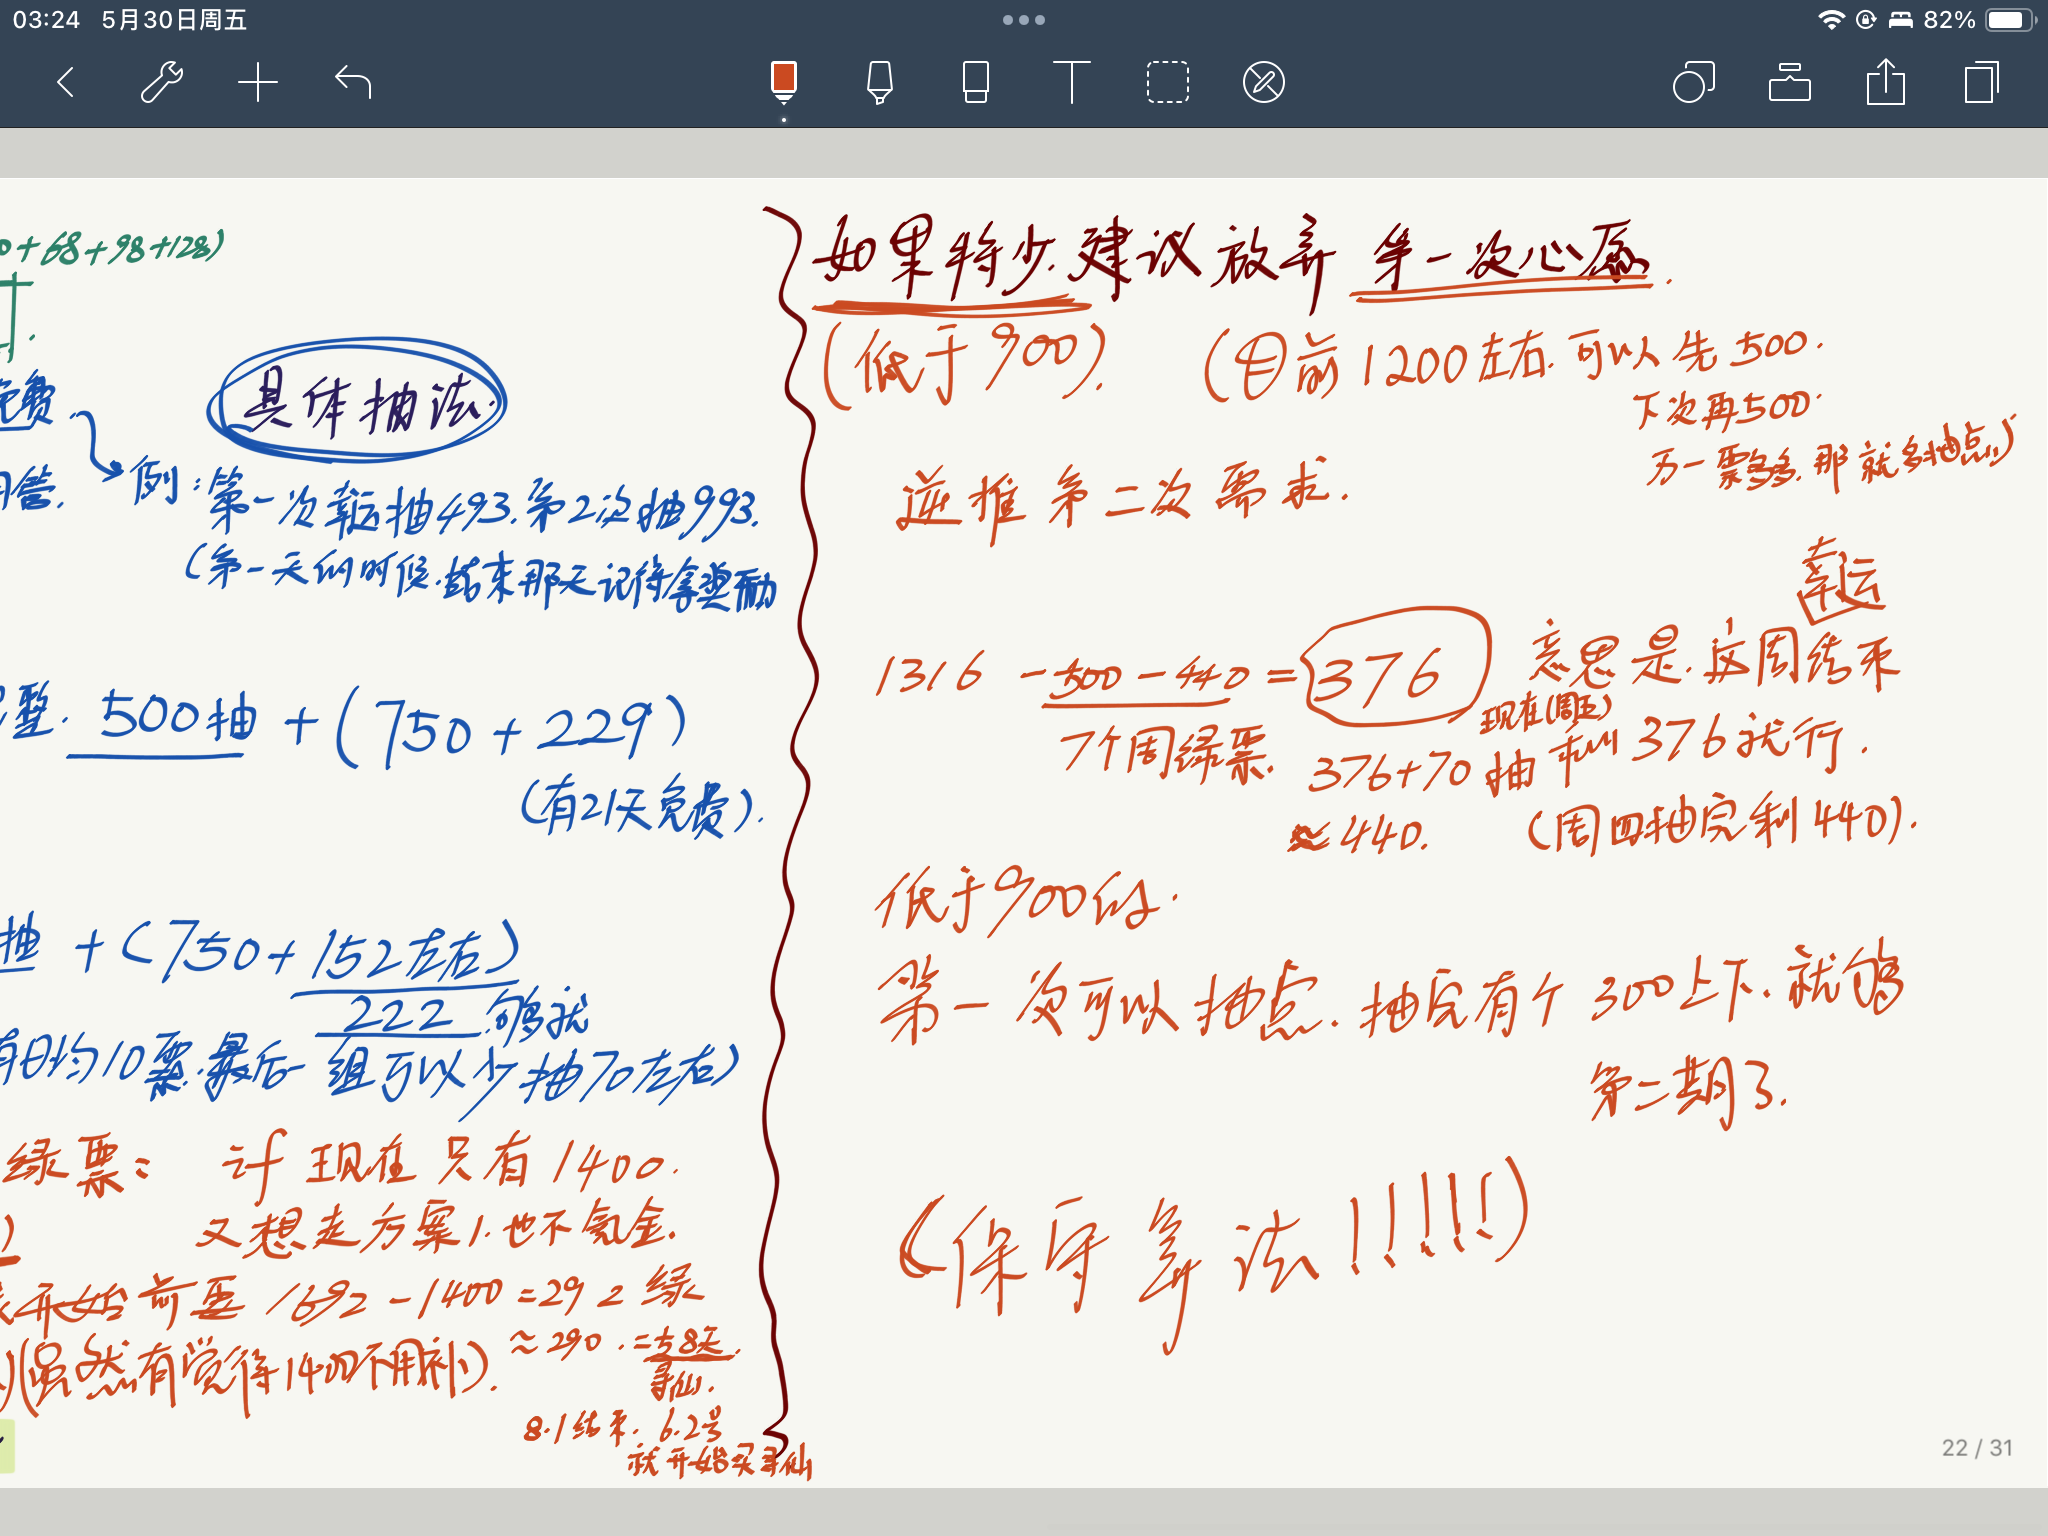 03:24 5月30日周五
82%
+68+98+128)
免费.
具体抽法.
例:第一次幸运抽493.第2次抽993.
(第一天的时候.结束那天记得拿奖励
500抽 + (750 + 229)
(有21天免费).
抽 + (750 + 152左右)
222 够就
日均10票.最后一组可以少抽70左右)
绿票: 计现在只有1400.
又想走方案1.也不氪金.
开始前要 1692 - 1400 = 292 绿
≈290. = 58天
寻仙.
(虽然有觉得1400不用补).
8.1结束. 6.2号
就开始买寻仙
如果特少.建议放弃 第一次心愿.
(低于900). (目前1200左右.可以先500.
下次再500.
万一票多多.那就多抽点)
逆推第二次需求.
幸运
1316 - 500 - 440 = 376 意思是.这周结束
现在(周五)
7个周绿票. 376+70 抽 376就行.
≈440. (周四抽完剩440).
低于900的.
第一次可以抽点.抽完有个300上下.就够
第二期了.
(保守算法!!!!!)
22 / 31